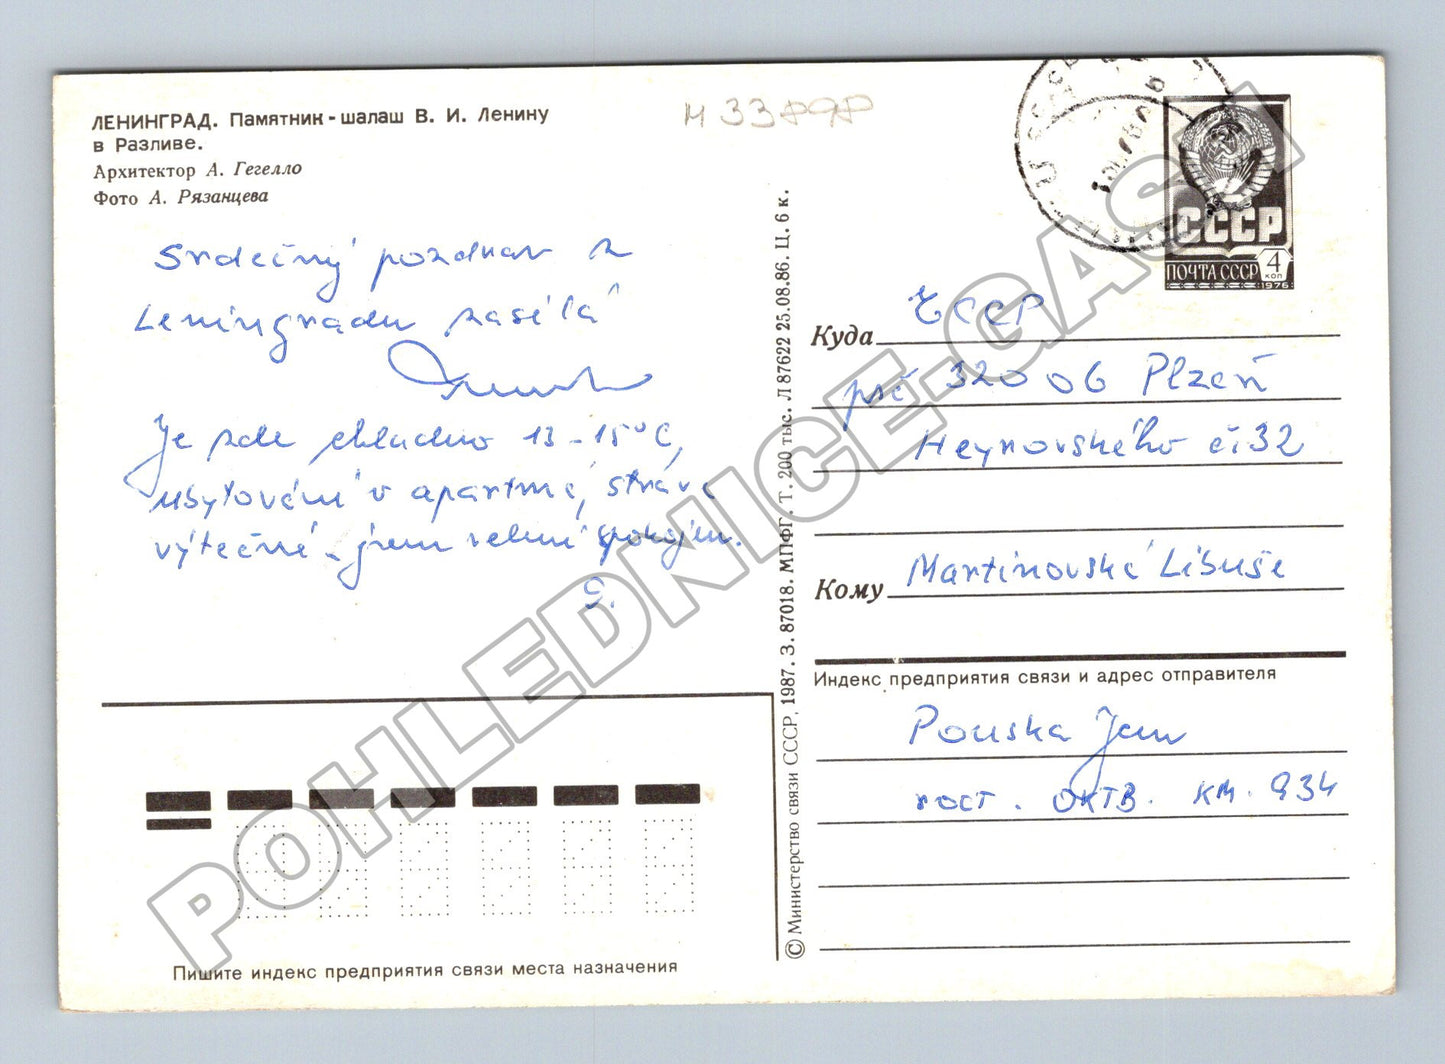 ЛЕНИНГРАД. Памятник-шалаш В. И. Ленину
в Разливе.
Архитектор А. Гегелло
Фото А. Рязанцева
Srdečný pozdrav z
Leningradu zasílá
Je zde chladno 13-15°C,
ubytování v apartmá, strava
výtečná - jsem velmi spokojen.
S.
© Министерство связи СССР, 1987. З. 87018. МПФГ. Т. 200 тыс. Л 87622 25.08.86. Ц. 6 к.
СССР
ПОЧТА СССР 4 коп
1976
Куда ČССР
psč 320 06 Plzeň
Heyrovského č. 32
Кому Martinovská Libuše
Индекс предприятия связи и адрес отправителя
Pouska Jan
гост. ОКТВ. КМ. 934
Пишите индекс предприятия связи места назначения
POHLEDNICE-GASH